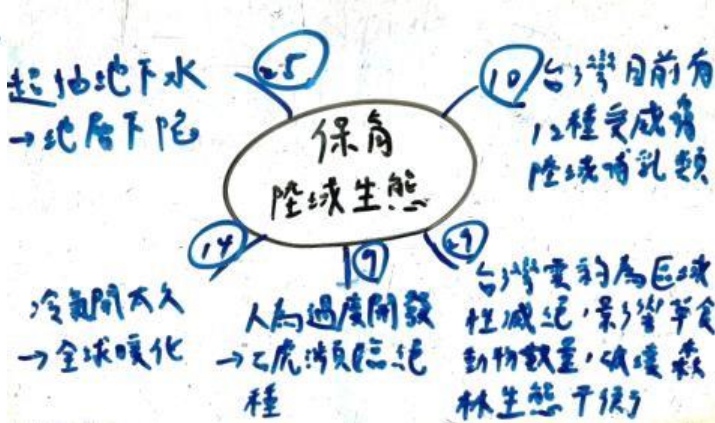 保育
陸域生態
25
超抽地下水
→地層下陷
10
台灣目前有
12種受威脅
陸域哺乳類
14
冷氣開太久
→全球暖化
9
人為過度開發
→石虎瀕臨絕
種
29
台灣雲豹為區域
性滅絕,影響草食
動物數量,破壞森
林生態平衡